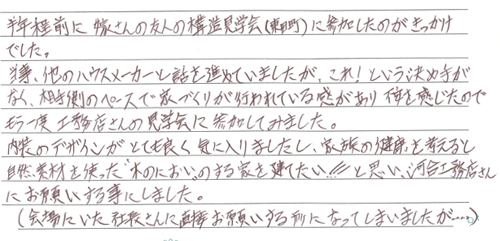 半年程前に嫁さんの友人の構造見学会(東田町)に参加したのがきっかけ
でした。
当事、他のハウスメーカーと話を進めていましたが、これ!という決め手が
なく、相手側のペースで家づくりが行われている感があり 何を感じたので
もう一度 工務店さんの見学会に参加してみました。
内装のデザインがとても良く気に入りましたし、家族の健康を考えると
自然素材を使った"木のにおい"のする家を建てたい!!と思い、河合工務店さん
にお願いする事にしました。
(会場にいた社長さんに直接お願いする形になってしまいましたが…)